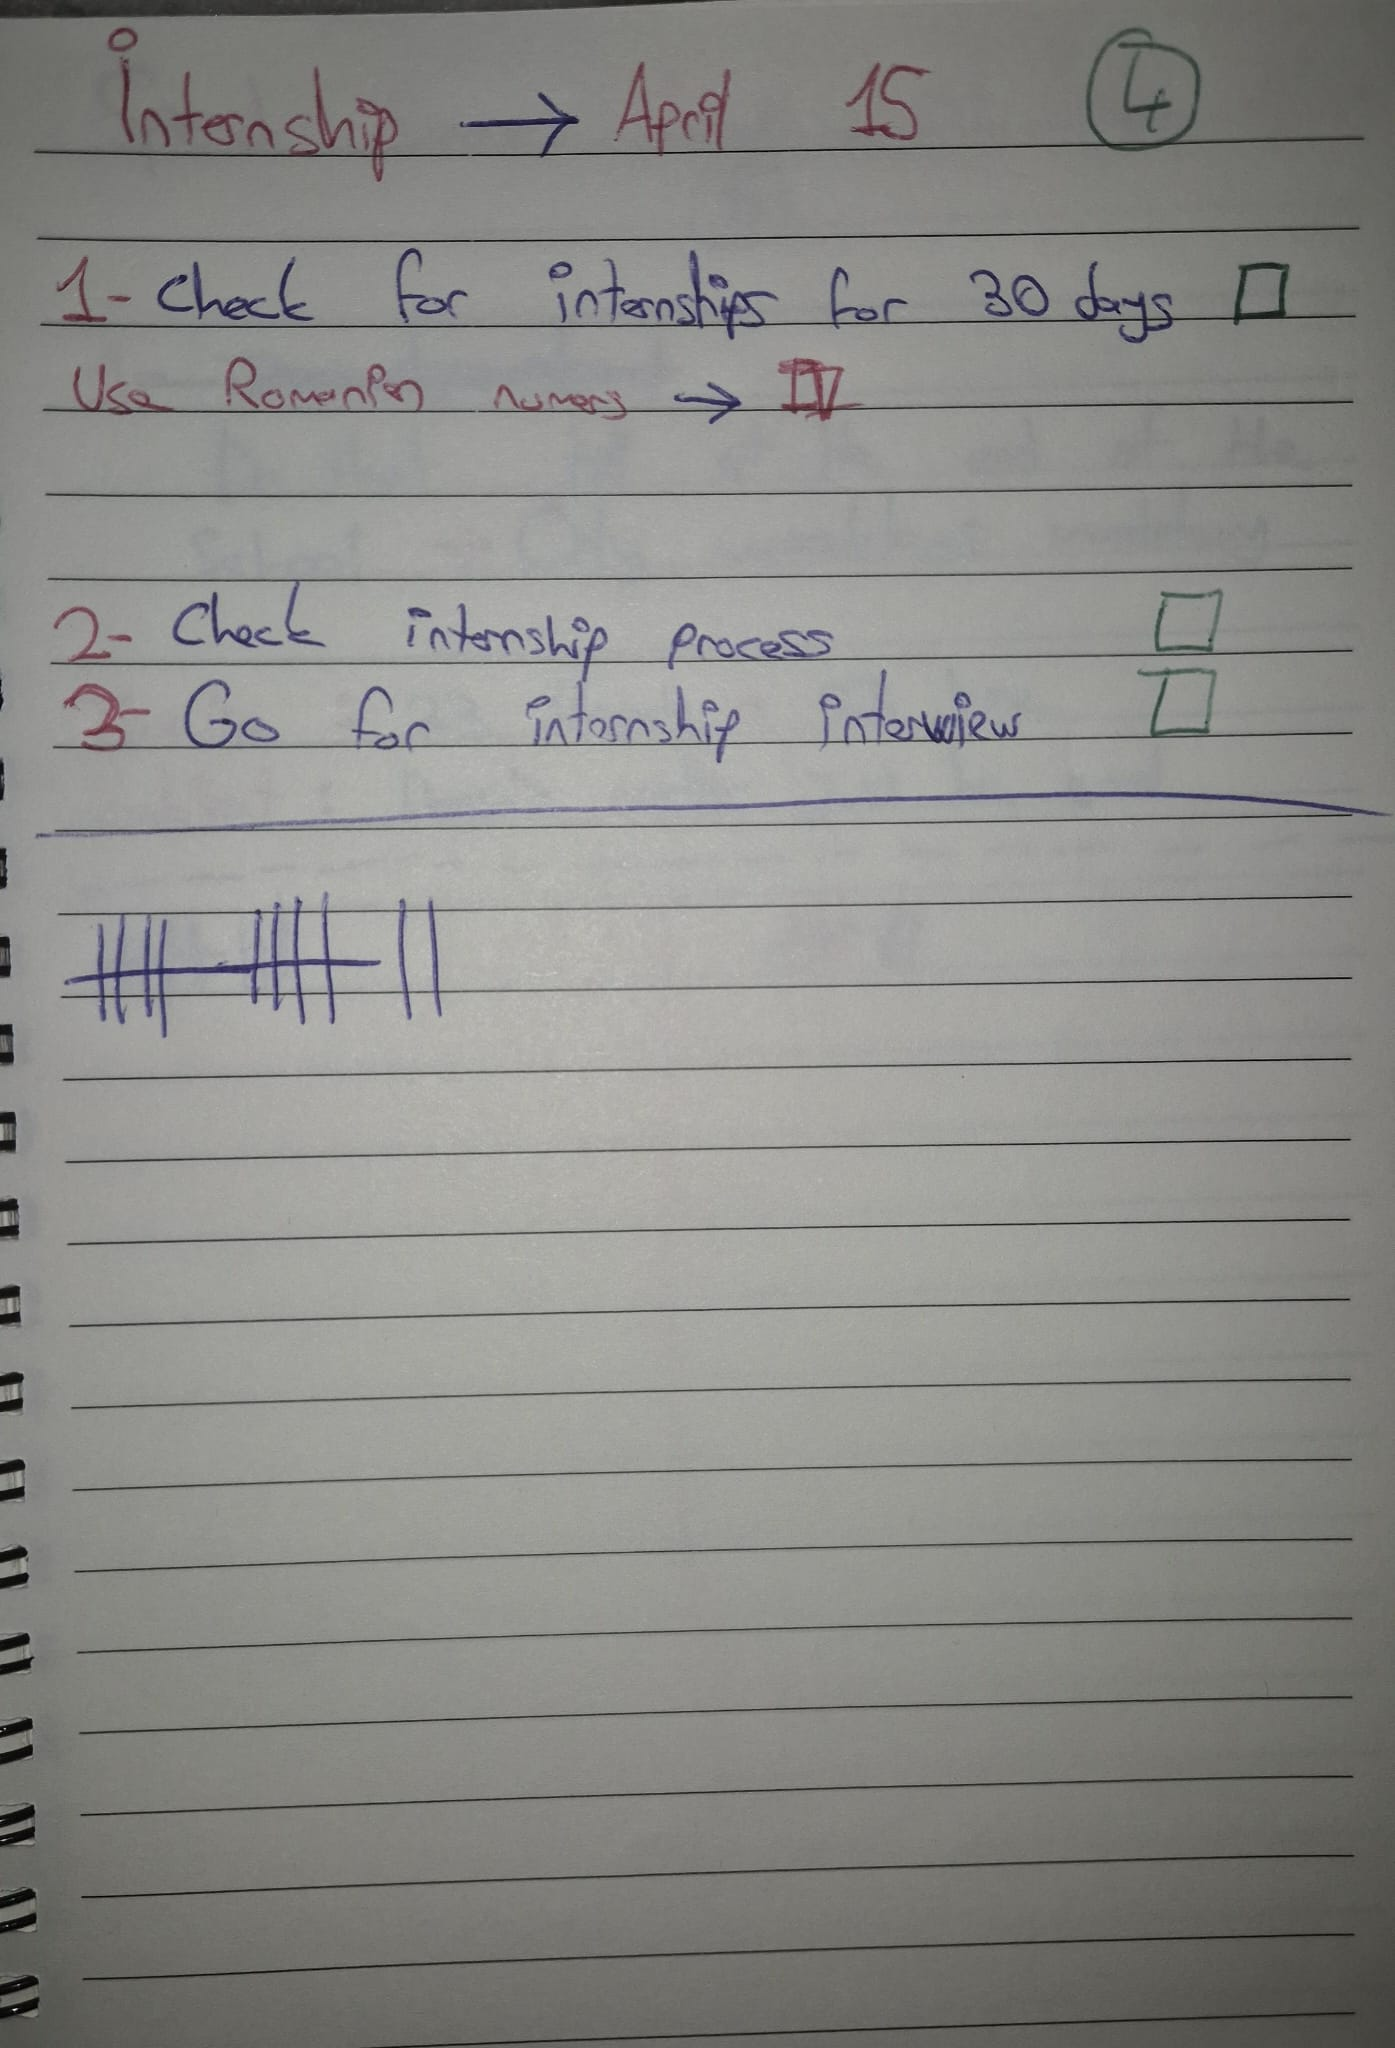 İnternship → April 15 4
1- Check for internships for 30 days □
Use Romanian numers → IV
2- Check internship process □
3- Go for internship interwiew □